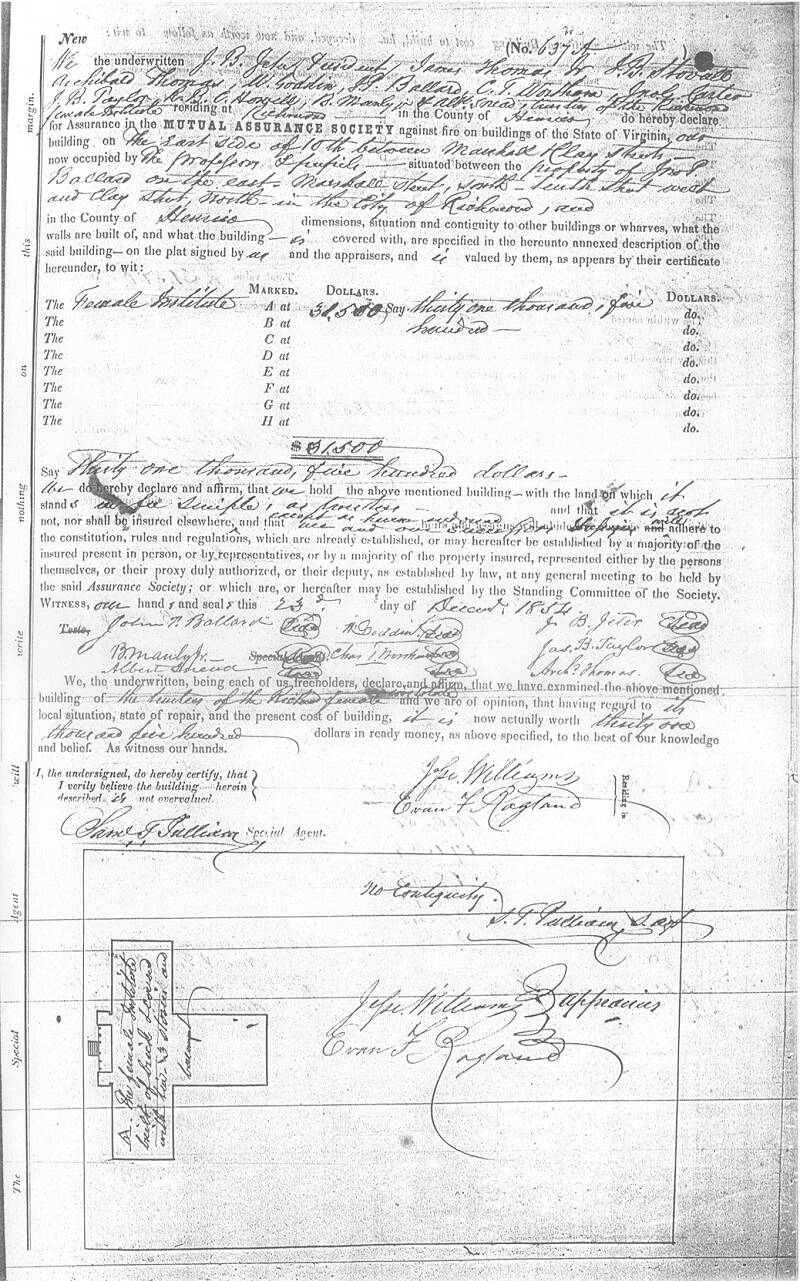 New (No. 637 A )
We the underwritten J. B. Jeter, President, James Thomas Jr J. B. Stovall
Archibald Thomas, W. Goddin, Jno P Ballard, C. T. Wortham, Carter
J. B. Taylor, R. B. C. Howell, B. Manly Jr & Albt Snead, trustees of the Richmond
female Institute residing at Richmond in the County of Henrico do hereby declare
for Assurance in the MUTUAL ASSURANCE SOCIETY against fire on buildings of the State of Virginia, our
building on the East side of 10th between Marshall & Clay streets
now occupied by the Professors & pupils situated between the property of Jno P
Ballard on the east - Marshall Street, south - tenth street west
and Clay street, North - in the City of Richmond, and
in the County of Henrico dimensions, situation and contiguity to other buildings or wharves, what the
walls are built of, and what the building is covered with, are specified in the hereunto annexed description of the
said building on the plat signed by us and the appraisers, and is valued by them, as appears by their certificate
hereunder, to wit:
MARKED. DOLLARS. DOLLARS.
The Female Institute A at 31,500 Say thirty one thousand, five do.
The B at hundred do.
The C at do.
The D at do.
The E at do.
The F at do.
The G at do.
The H at do.
$ 31,500
Say Thirty one thousand, five hundred dollars
We do hereby declare and affirm, that we hold the above mentioned building with the land on which it
stands in fee simple, as trustees and that it is not
not, nor shall be insured elsewhere, and that we and our will adhere to
the constitution, rules and regulations, which are already established, or may hereafter be established by a majority of the
insured present in person, or by representatives, or by a majority of the property insured, represented either by the persons
themselves, or their proxy duly authorized, or their deputy, as established by law, at any general meeting to be held by
the said Assurance Society; or which are, or hereafter may be established by the Standing Committee of the Society.
WITNESS, our hands and seals this 23d day of Decemr 1854
Teste, John P. Ballard Seal W. Goddin Seal J B. Jeter Seal
B. Manly Jr. Special Agent. Chas T. Wortham Seal Jas. B. Taylor Seal
Albert Snead Seal Archd Thomas. Seal
We, the underwritten, being each of us freeholders, declare and affirm, that we have examined the above mentioned
building of the trustees of the Richmd female Institute and we are of opinion, that having regard to its
local situation, state of repair, and the present cost of building, it is now actually worth thirty one
thousand five hundred dollars in ready money, as above specified, to the best of our knowledge
and belief. As witness our hands.
I, the undersigned, do hereby certify, that
I verily believe the building herein
described is not overvalued.
Jesse Williams
Evan F. Ragland
Residing in
Saml T. Pulliam Special Agent.
No Contiguity.
S. T. Pulliam, S. agt
Jesse Williams
Evan F Ragland
appraisers
A. The female Institute
built of brick & covered
with tin - 3 stories and
basement
The Special Agent will write nothing on this margin.